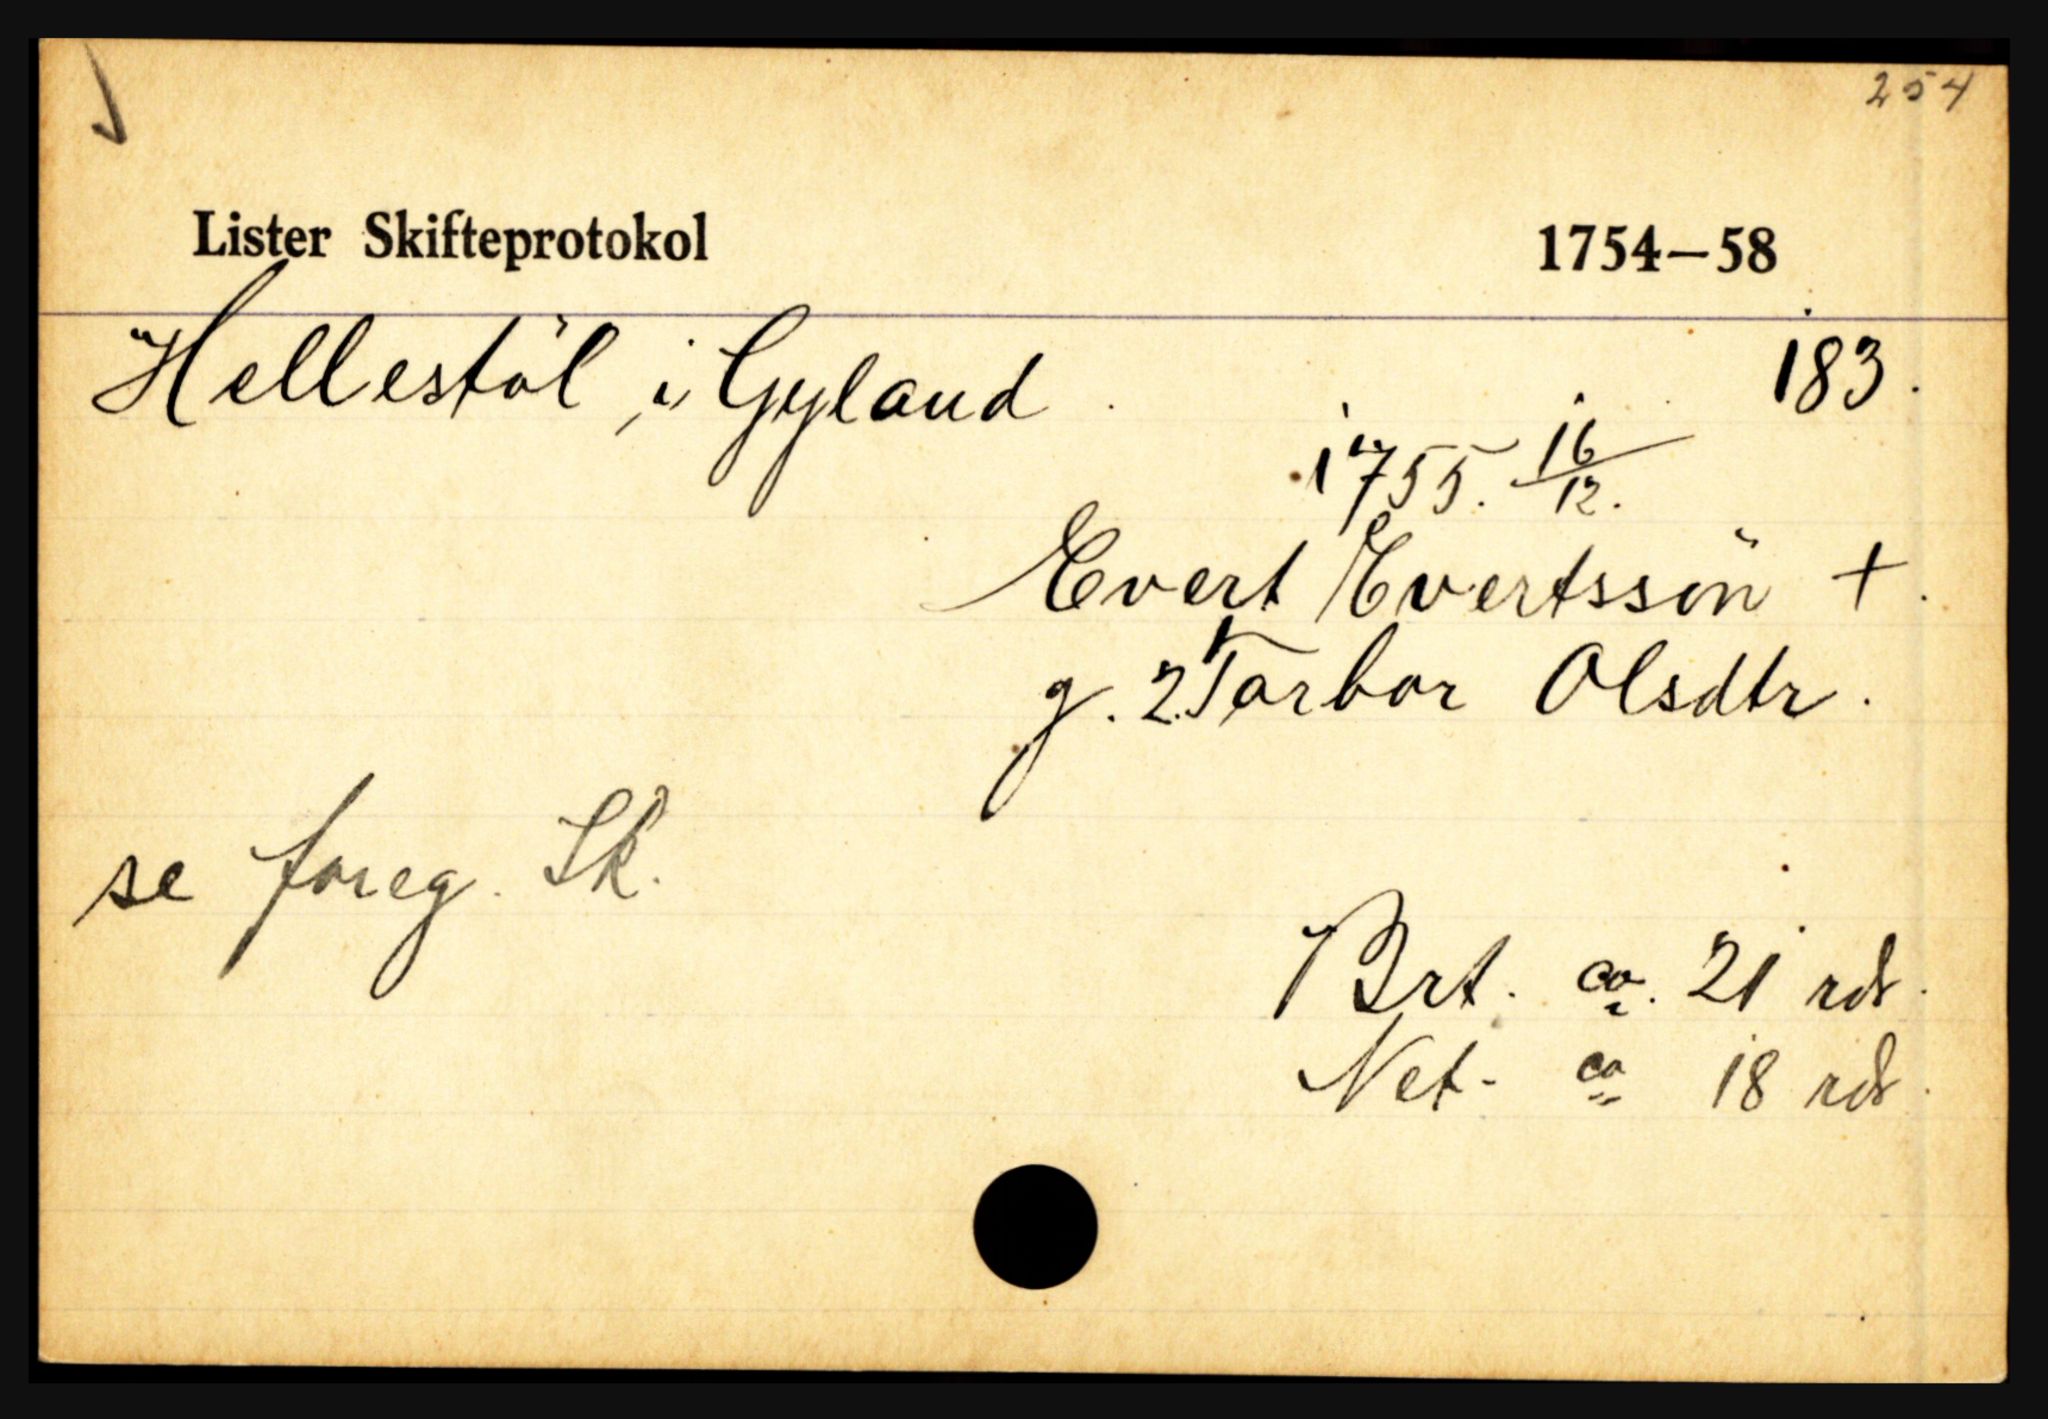 254
Lister Skifteprotokol 1754–58
Hellestöl, i, Gyland. 183.
1755. 16/12.
Evert Evertssön +.
g. 2. Tarbor Olsdtr.
se foreg. Sk.
Brt. ca. 21 rdr.
Net. ca 18 rdr.